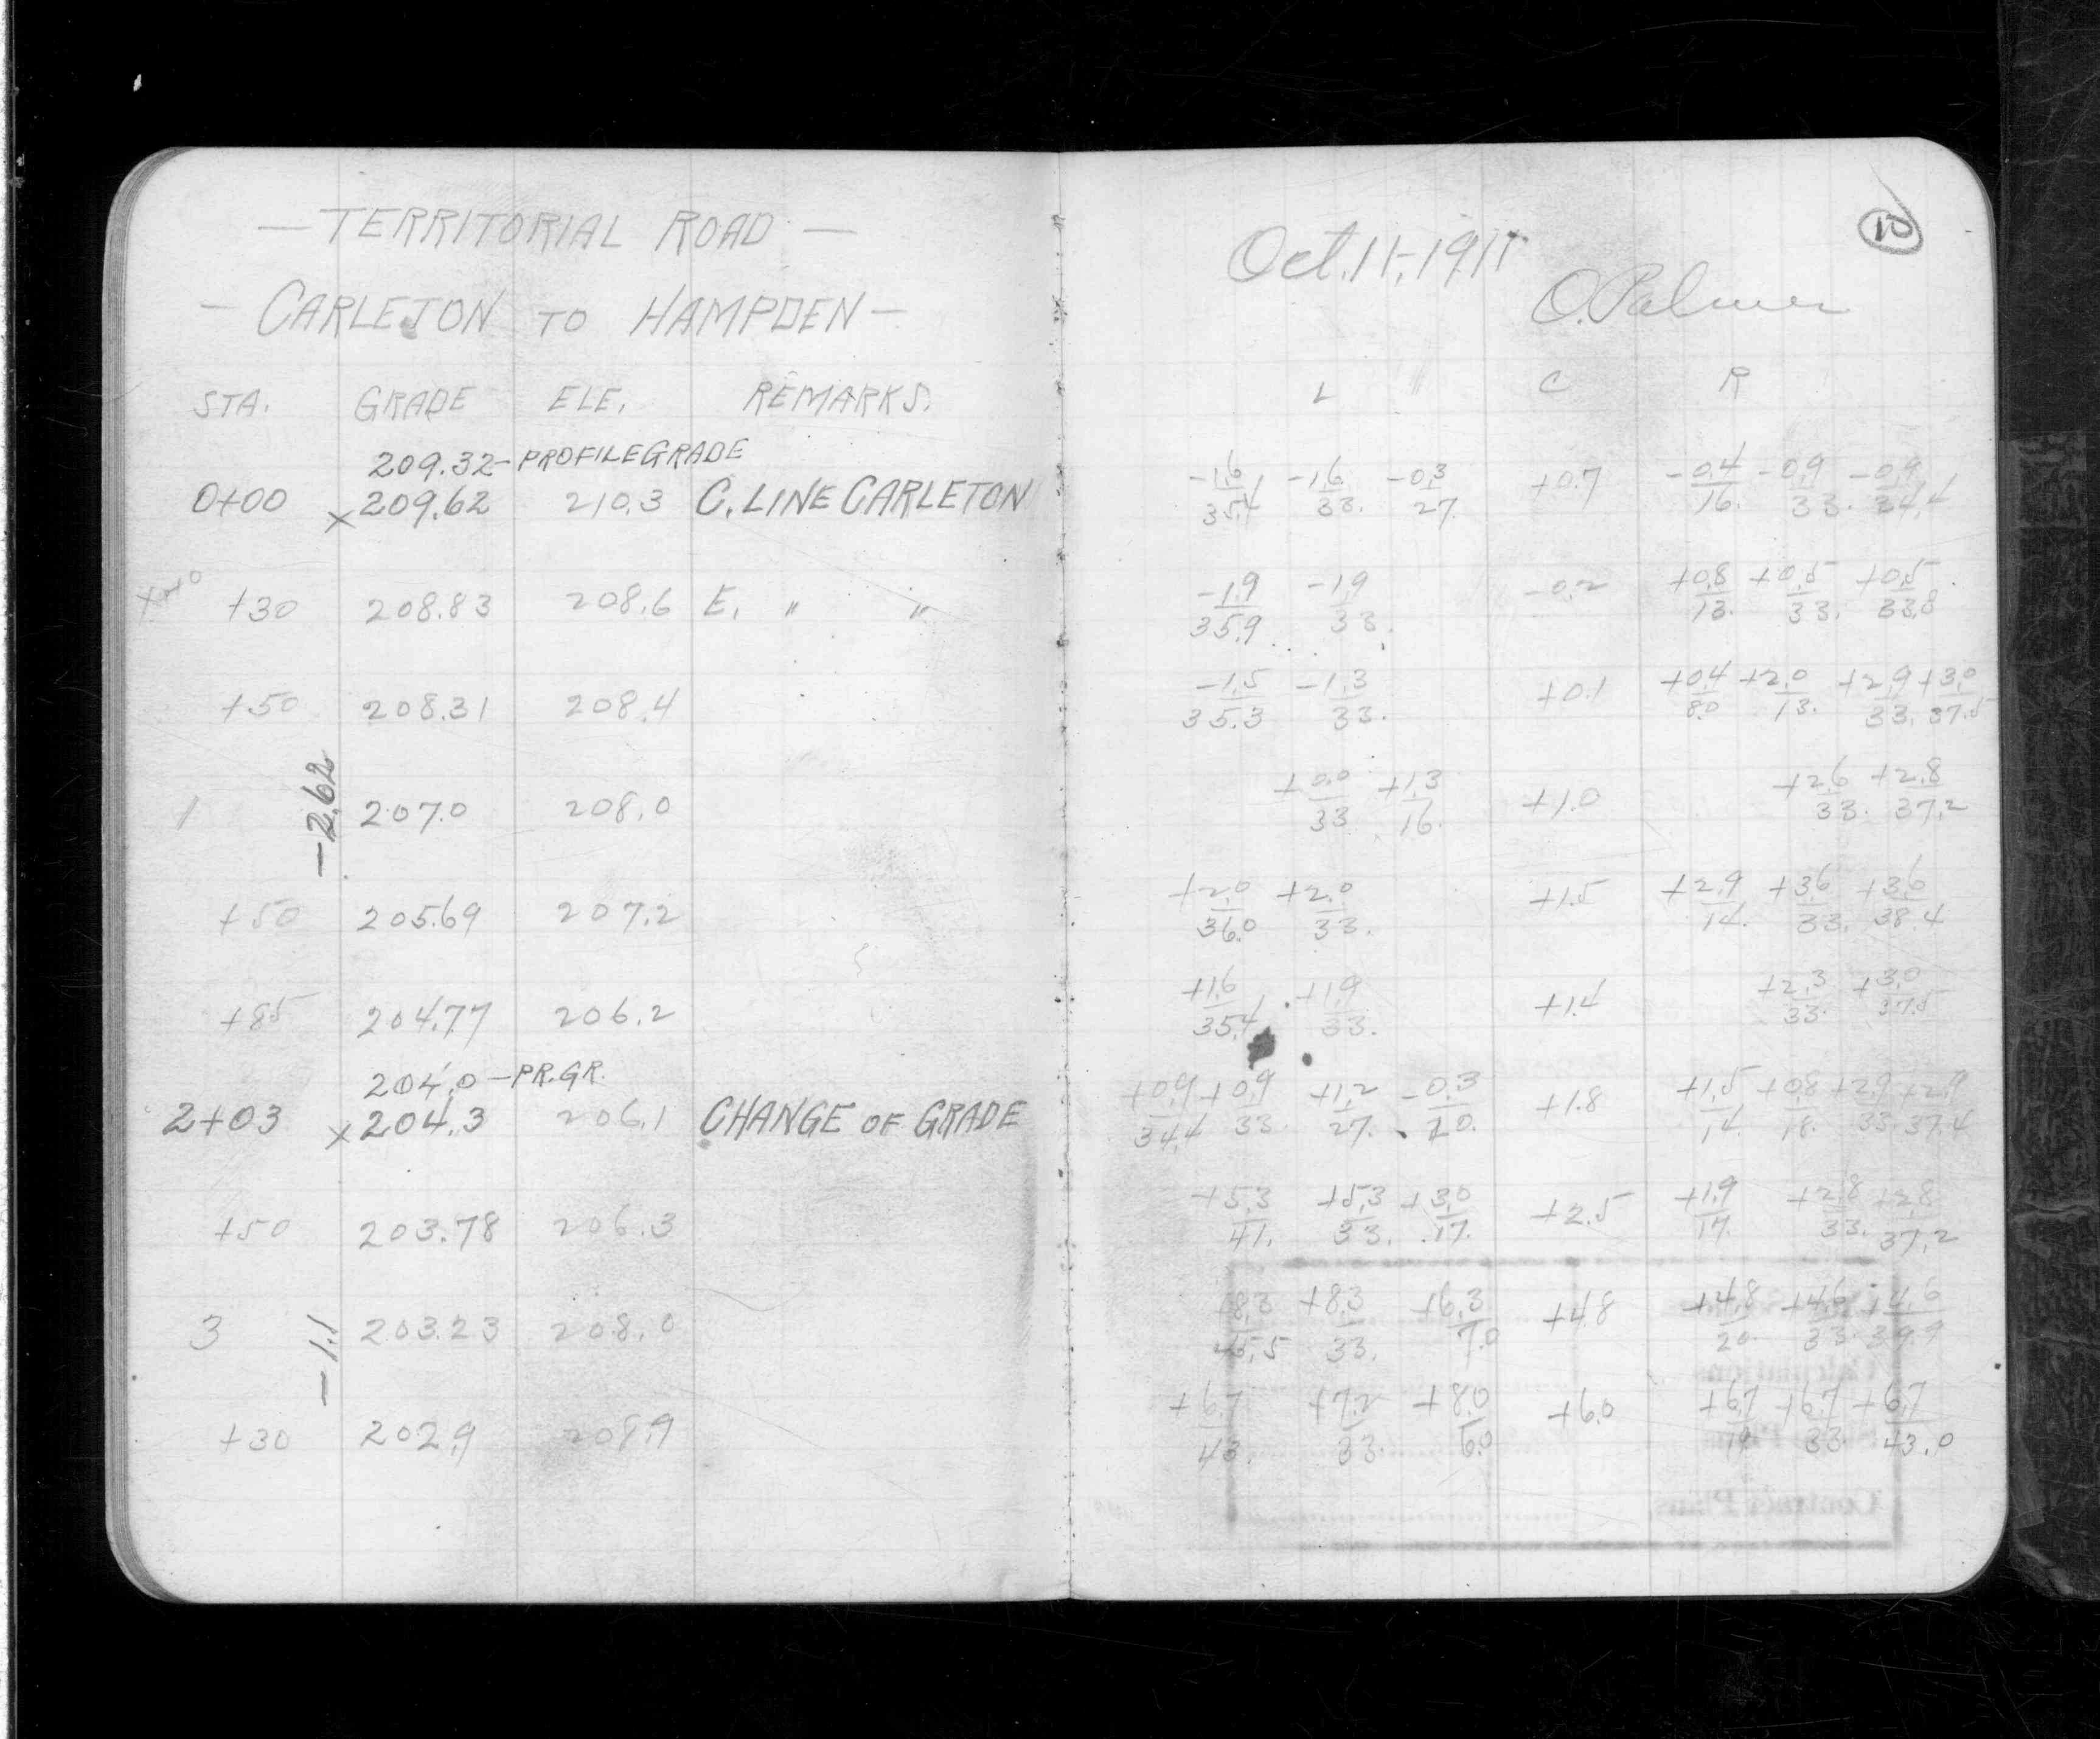 — TERRITORIAL ROAD —
— CARLETON TO HAMPDEN —
STA. GRADE ELE. REMARKS.
209.32 - PROFILE GRADE
0+00 x 209.62 210.3 C. LINE CARLETON
+30 208.83 208.6 E. " "
+50 208.31 208.4
1 207.0 208.0
-2.62
+50 205.69 207.2
+85 204.77 206.2
204.0 - PR. GR.
2+03 x 204.3 206.1 CHANGE OF GRADE
+50 203.78 206.3
3 203.23 208.0
-1.1
+30 202.9 208.9
Oct. 11, - 1911
O. Palmer
L C R
-1.6 -1.6 -0.3 +0.7 -0.4 -0.9 -0.9
35.4 33. 27. 16. 33. 34.4
-1.9 -1.9 -0.2 +0.8 +0.5 +0.5
35.9 33. 13. 33. 33.8
-1.5 -1.3 +0.1 +0.4 +2.0 +2.9 +3.0
35.3 33. 8.0 13. 33. 37.5
+0.0 +1.3 +1.0 +2.6 +2.8
33 16. 33. 37.2
+2.0 +2.0 +1.5 +2.9 +3.6 +3.6
36.0 33. 14. 33. 38.4
+1.6 +1.9 +1.4 +2.3 +3.0
35.4 33. 33. 37.5
+0.9 +0.9 +1.2 -0.3 +1.8 +1.5 +0.8 +2.9 +2.9
34.4 33. 27. 20. 14. 18. 33. 37.4
+5.3 +5.3 +3.0 +2.5 +1.9 +2.8 +2.8
41. 33. 17. 17. 33. 37.2
+8.3 +8.3 +6.3 +4.8 +4.8 +4.6 +4.6
45.5 33. 7.0 20. 33. 39.9
+6.7 +7.2 +8.0 +6.0 +6.7 +6.7 +6.7
43. 33. 6.0 33. 43.0